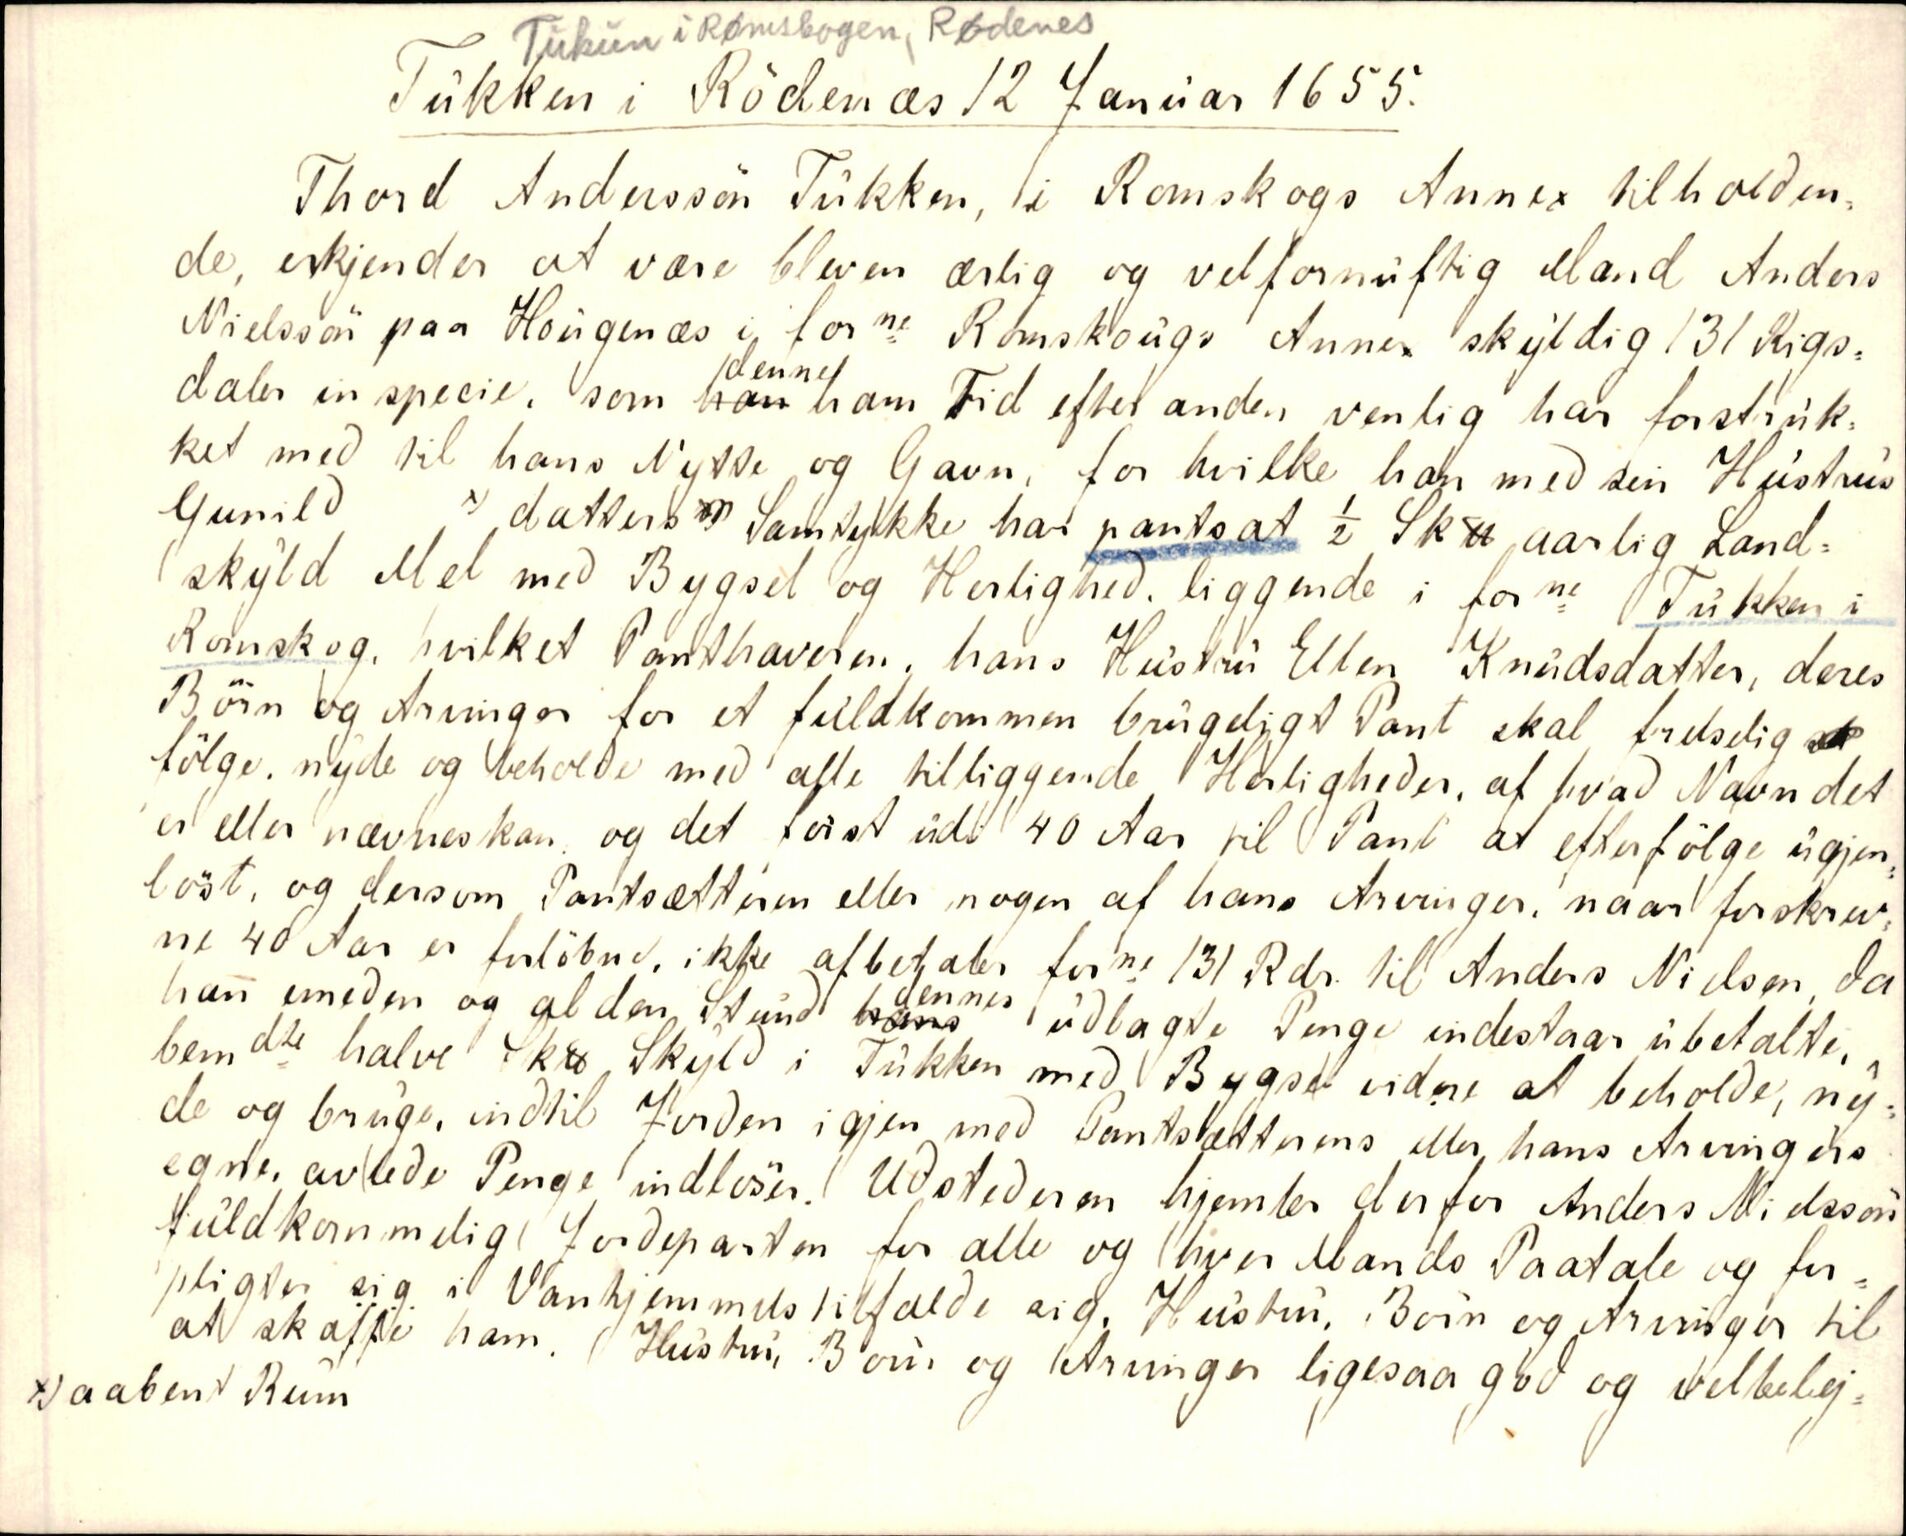 Tukun i Rømskogen, Rødenes
Tukken i Rödenæs 12 Januar 1655.
Thord Anderssön Tukken, i Romskogs Annex tilholden-
de, erkjender at være bleven ærlig og velfornuftig Mand Anders
Nielssön paa Hougenæs i forne Romskougs Annex skyldig 131 Rigs-
daler in specie, som han denne ham Tid efter anden venlig har forstruk-
ket med til hans Nytte og Gavn, for hvilke han med sin Hustrus
Gunild x) datters Samtykke har pantsat ½ Sk℔ aarlig Land-
skyld Mel med Bygsel og Herlighed, liggende i forne Tukken i
Romskog, hvilket Panthaveren, hans Hustru Ellen Knudsdatter, deres
Börn og Arvinger for et fuldkommen brugeligt Pant skal frelselig
fölge, nyde og beholde med alle tilliggende Herligheder, af hvad Navn det
er eller nævnes kan, og det först udi 40 Aar til Pant at efterfölge ugjen-
löst, og dersom Pantsætteren eller nogen af hans Arvinger, naar forskrev-
ne 40 Aar er forlöbne, ikke afbetaler forne 131 Rdr. til Anders Nielsen, da
han emeden og al den Stund hans dennes udlagte Penge indestaar ubetalte,
bemdte halve Sk℔ Skyld i Tukken med Bygsel videre at beholde, ny-
de og bruge, indtil Jorden igjen med Pantsætterens eller hans Arvingers
egne, avlede Penge indlöser. Udstederen hjemler derfor Anders Nielssön
fuldkommelig Jordeparten for alle og hver Mands Paatale og for-
pligter sig i Vanhjemmelstilfælde sig, Hustru, Börn og Arvinger til
at skaffe ham, Hustru, Börn og Arvinger ligesaa god og velbelej-
x) aabent Rum